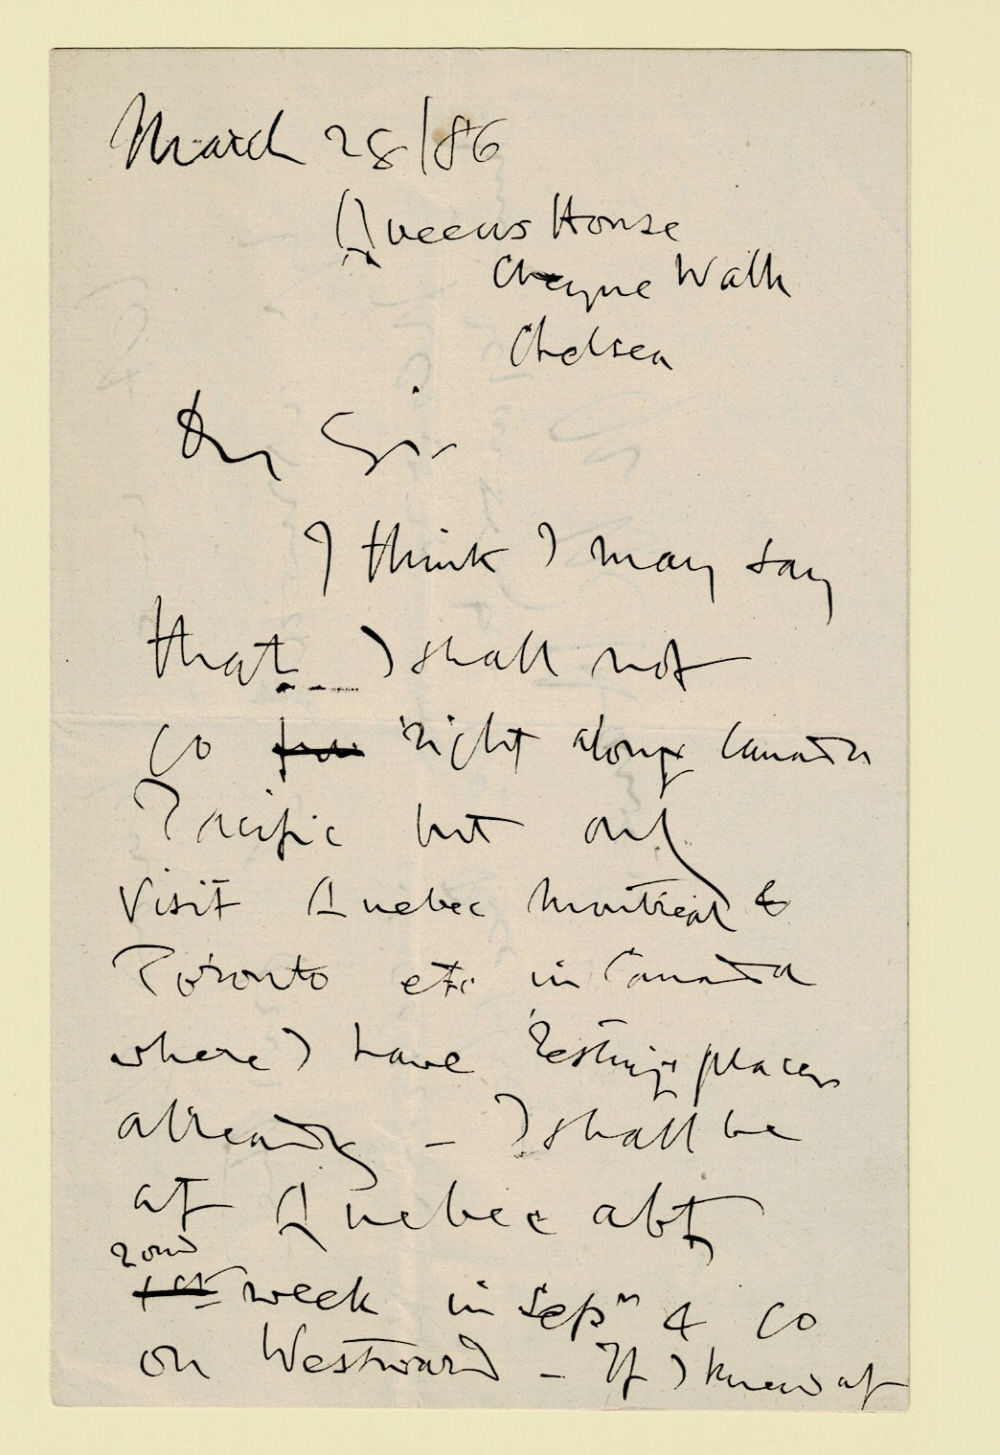 March 28/86
Queens House
Cheyne Walk
Chelsea
Dr Sir
I think I may say
that I shall not
go right along Canada
Pacific but only
visit Quebec Montreal &
Toronto etc in Canada
where I have resting places
already – I shall be
at Quebec abt
2nd
1st week in Sepr & go
on Westward – If I knew of